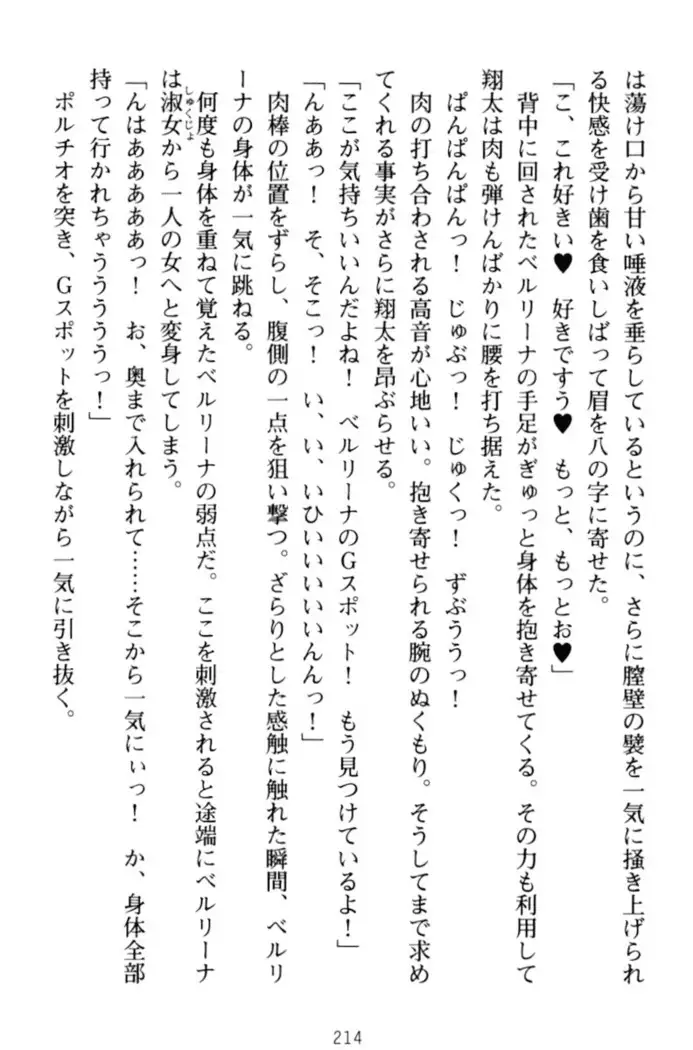 は蕩け口から甘い唾液を垂らしているというのに、さらに膣壁の襞を一気に掻き上げられ
る快感を受け歯を食いしばって眉を八の字に寄せた。
「こ、これ好きぃ♥　好きですう♥　もっと、もっとお♥」
背中に回されたベルリーナの手足がぎゅっと身体を抱き寄せてくる。その力も利用して
翔太は肉も弾けんばかりに腰を打ち据えた。
ぱんぱんぱんっ！　じゅぶっ！　じゅくっ！　ずぶううっ！
肉の打ち合わされる高音が心地いい。抱き寄せられる腕のぬくもり。そうしてまで求め
てくれる事実がさらに翔太を昂ぶらせる。
「ここが気持ちいいんだよね！　ベルリーナのＧスポット！　もう見つけているよ！」
「んああっ！　そ、そこっ！　い、い、いひいいいいいんんっ！」
肉棒の位置をずらし、腹側の一点を狙い撃つ。ざらりとした感触に触れた瞬間、ベルリ
ーナの身体が一気に跳ねる。
何度も身体を重ねて覚えたベルリーナの弱点だ。ここを刺激されると途端にベルリーナ
は淑女しゅくじょから一人の女へと変身してしまう。
「んはあああああっ！　お、奥まで入れられて……そこから一気にぃっ！　か、身体全部
持って行かれちゃうううううっ！」
ポルチオを突き、Ｇスポットを刺激しながら一気に引き抜く。
214